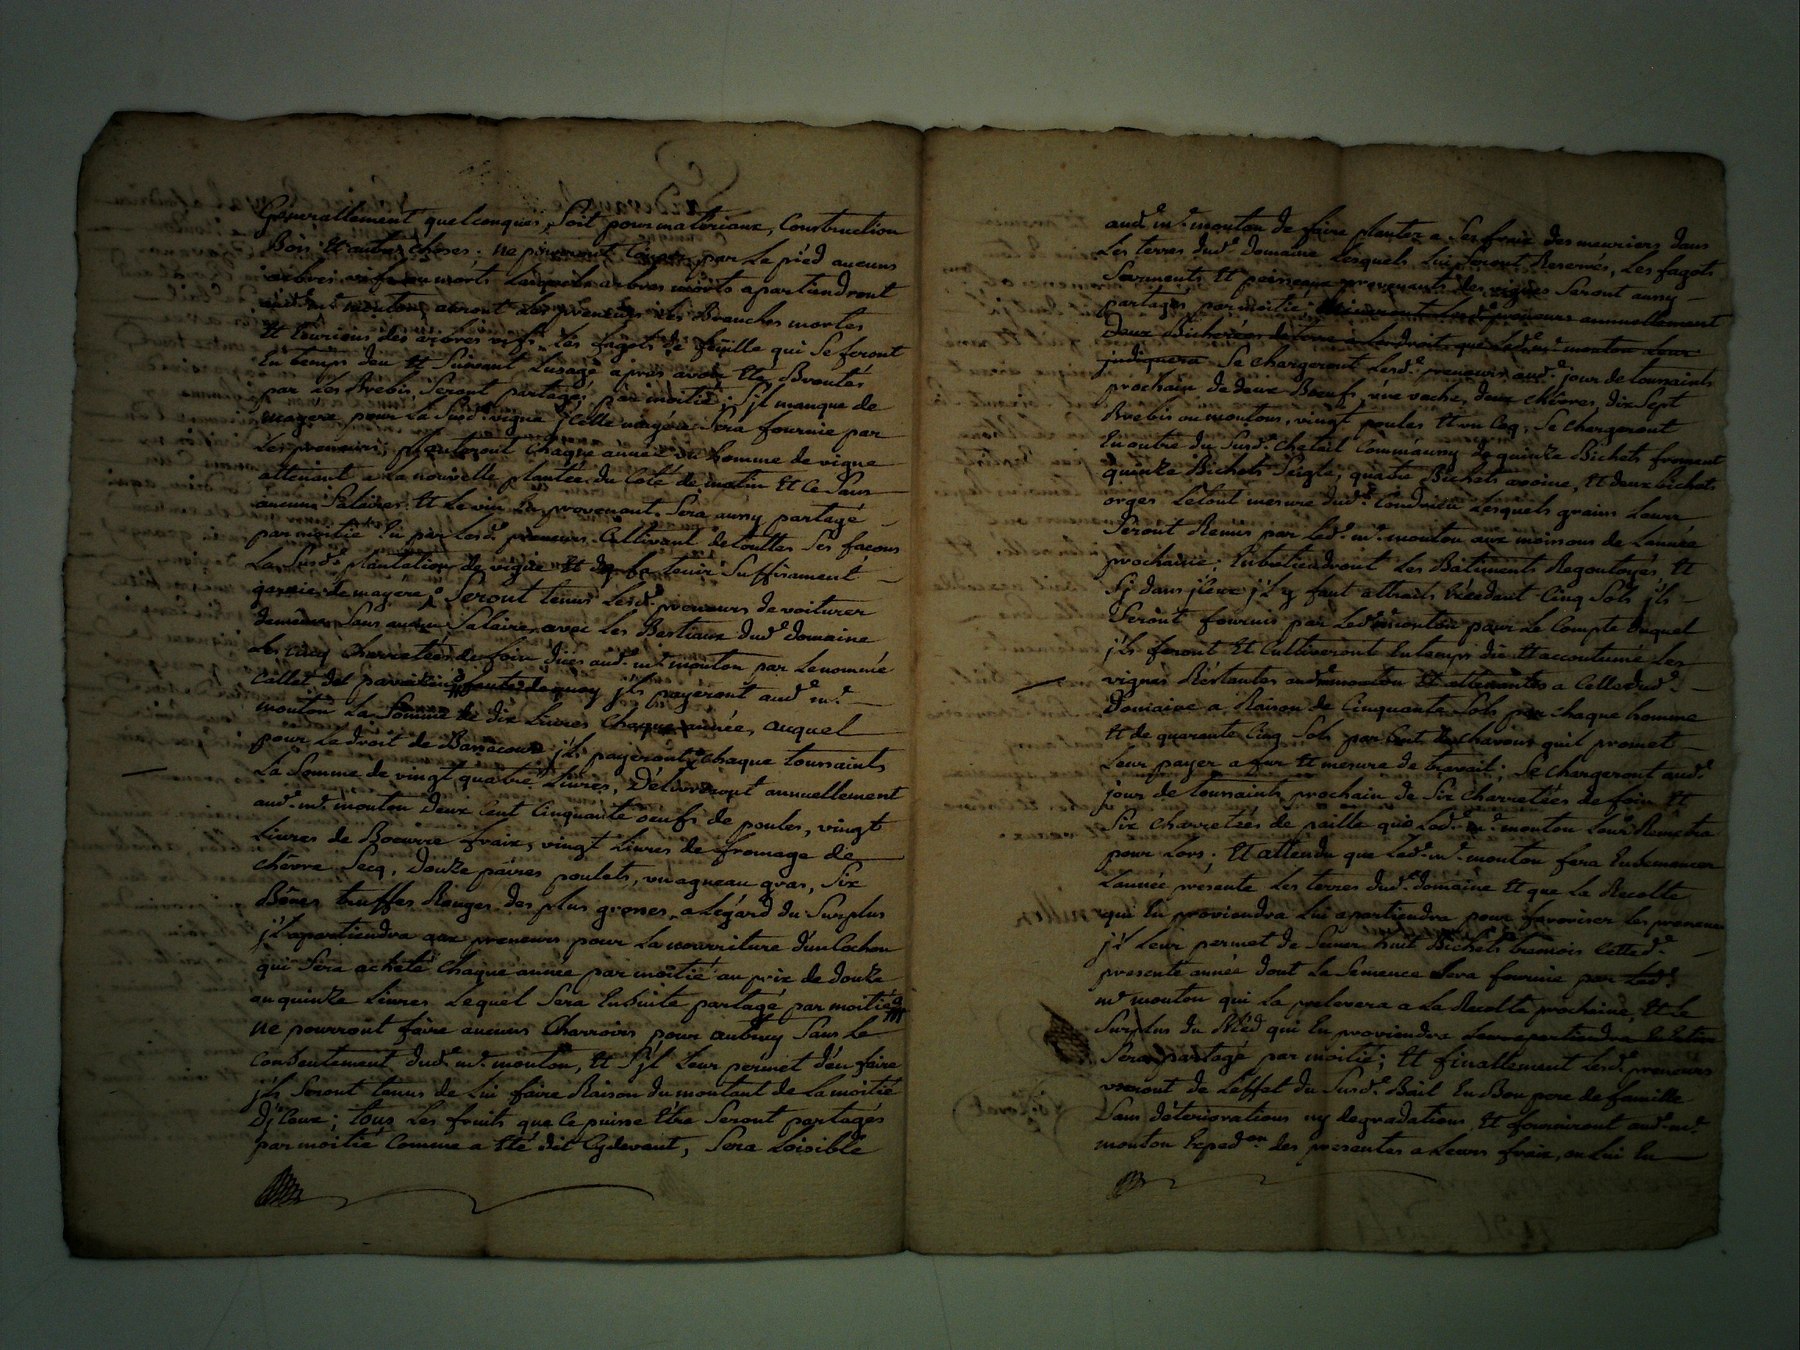 Generallement quelconques, Soit pour materiaux, Construction
Bois Et autres choses; ne pourront Couper par Le pied aucuns
arbres vifs ou morts Lesquels arbres morts apartiendront
mouton, auront Les preneurs les Branches mortes
Et des arbres vifs, Les fagots de feuille qui Se feront
En temps deu Et Suivant Lusage apres avoir Eté Broutés
par Les Brebis, Seront partagés par moitié; S'jl manque de
mayere pour La Susd.e vigne jcelle mayere Sera fournie par
Les preneurs; planteront Chaque année Un homme de vigne
attenant a La nouvelle plantée du Coté de matin Et Ce Sans
aucuns Salaires, Et Le vin En provenant Sera aussy partagé
par moitié En par Lesd.s preneurs Cultivant de touttes Ses façons
La Susd.e plantation de vigne Et de La tenir Suffisament
garnie de mayere, Seront tenus Lesd.s preneurs de voiturer
Sans aucun Salaire avec Les Bestiaux dud.t domaine
Les Cinq Charretées de foin dües aud.t m.r mouton par Le nommé
jls payeront aud.t m.r
mouton La Somme de dix Livres Chaque année, auquel
pour Le droit de Bassecour jls payeront Chaque toussaints
La Somme de vingt quatre Livres, Délivreront annuellement
aud.t m.r mouton deux Cent Cinquante oeufs de poules, vingt
Livres de Beurre fraix, vingt Livres de fromage de
chévre Secq, Douze paires poulets, un agneau gras, Six
Bênes truffes Rouges des plus grosses, a Légard du Surplus
jl apartiendra aux preneurs pour La nourriture d'un Cochon
qui Sera acheté Chaque année par moitié au prix de douze
ou quinze Livres Lequel Sera Ensuite partagé par moitié
ne pourront faire aucuns Charrois pour autruy Sans Le
Consentement dud.t m.r mouton, Et S'jl Leur permet d'en faire
jls Seront tenus de Lui faire Raison du montant de La moitié
D'jceux; tous Les fruits que Ce puisse Etre Seront partagés
par moitié Comme a Eté dit Cydevant, Sera Loisible
aud.t m.r mouton de faire planter a Ses fraix des meuriers dans
Les terres dud.t domaine Lesquels Lui Seront Reservés, Les fagots
Sarments Et paisseaux provenants des vignes Seront aussy
partagés par moitié, annuellement
Deux Bicherées de terre a L'endroit que Led.t m.r mouton Leur
jndiquera Se chargeront Lesd.s preneurs aud.t jour de toussaints
prochain de deux Boeufs, une vache, deux chévres, dix Sept
Brebis ou moutons, vingt poules Et un Coq, Se chargeront
En outre du Susd.t Cheteil de quinze Bichets froment
quinze Bichets Seigle, quatre Bichets avoine, Et deux bichets
orges Le tout mesure dud.t Condrieu Lesquels grains Leur
Seront Remis par Led.t m.r mouton aux moissons de Lannée
prochaine; Entretiendront Les Bâtiments Regoutoyés, Et
Sy dans jceux j'l y faut attraits Excedant Cinq Sols jls
Seront fournis par Led.t mouton pour Le Compte Duquel
jls feront Et Cultiveront En temps dü Et accoutumé Les
vignes Réstantes aud.t mouton Et attenantes a Celle dud.t
Domaine a Raison de Cinquante Sols par chaque homme
Et de quarante Cinq Sols par Cent de chavous qu'il promet
Leur payer a fur Et mesure de travail; Se chargeront aud.t
jour de toussaints prochain de Six Charretées de foin Et
Six Charretées de paille que Led.t m.r mouton Leur Remetra
pour Lors; Et attendu que Led.t m.r mouton fera Ensemencer
Lannée présente Les terres dud.t domaine Et que La Recolte
qui En proviendra Lui apartiendra pour favoriser Les preneurs
j'l Leur permet de Semer huit Bichets tremois Cette d.e
presente année dont La Semence Sera fournie par Led.t
m.r mouton qui La prelevera a La Recolte prochaine, Et Le
Surplus du Bléd qui En proviendra
Sera partagé par moitié; Et finallement Lesd.s preneurs
useront de L'effet du Susd.t Bail En Bon pere de famille
Sans deteriorations ny degradations, Et fourniront aud.t m.r
mouton Exped.on des presentes a Leurs fraix, ou Lui En